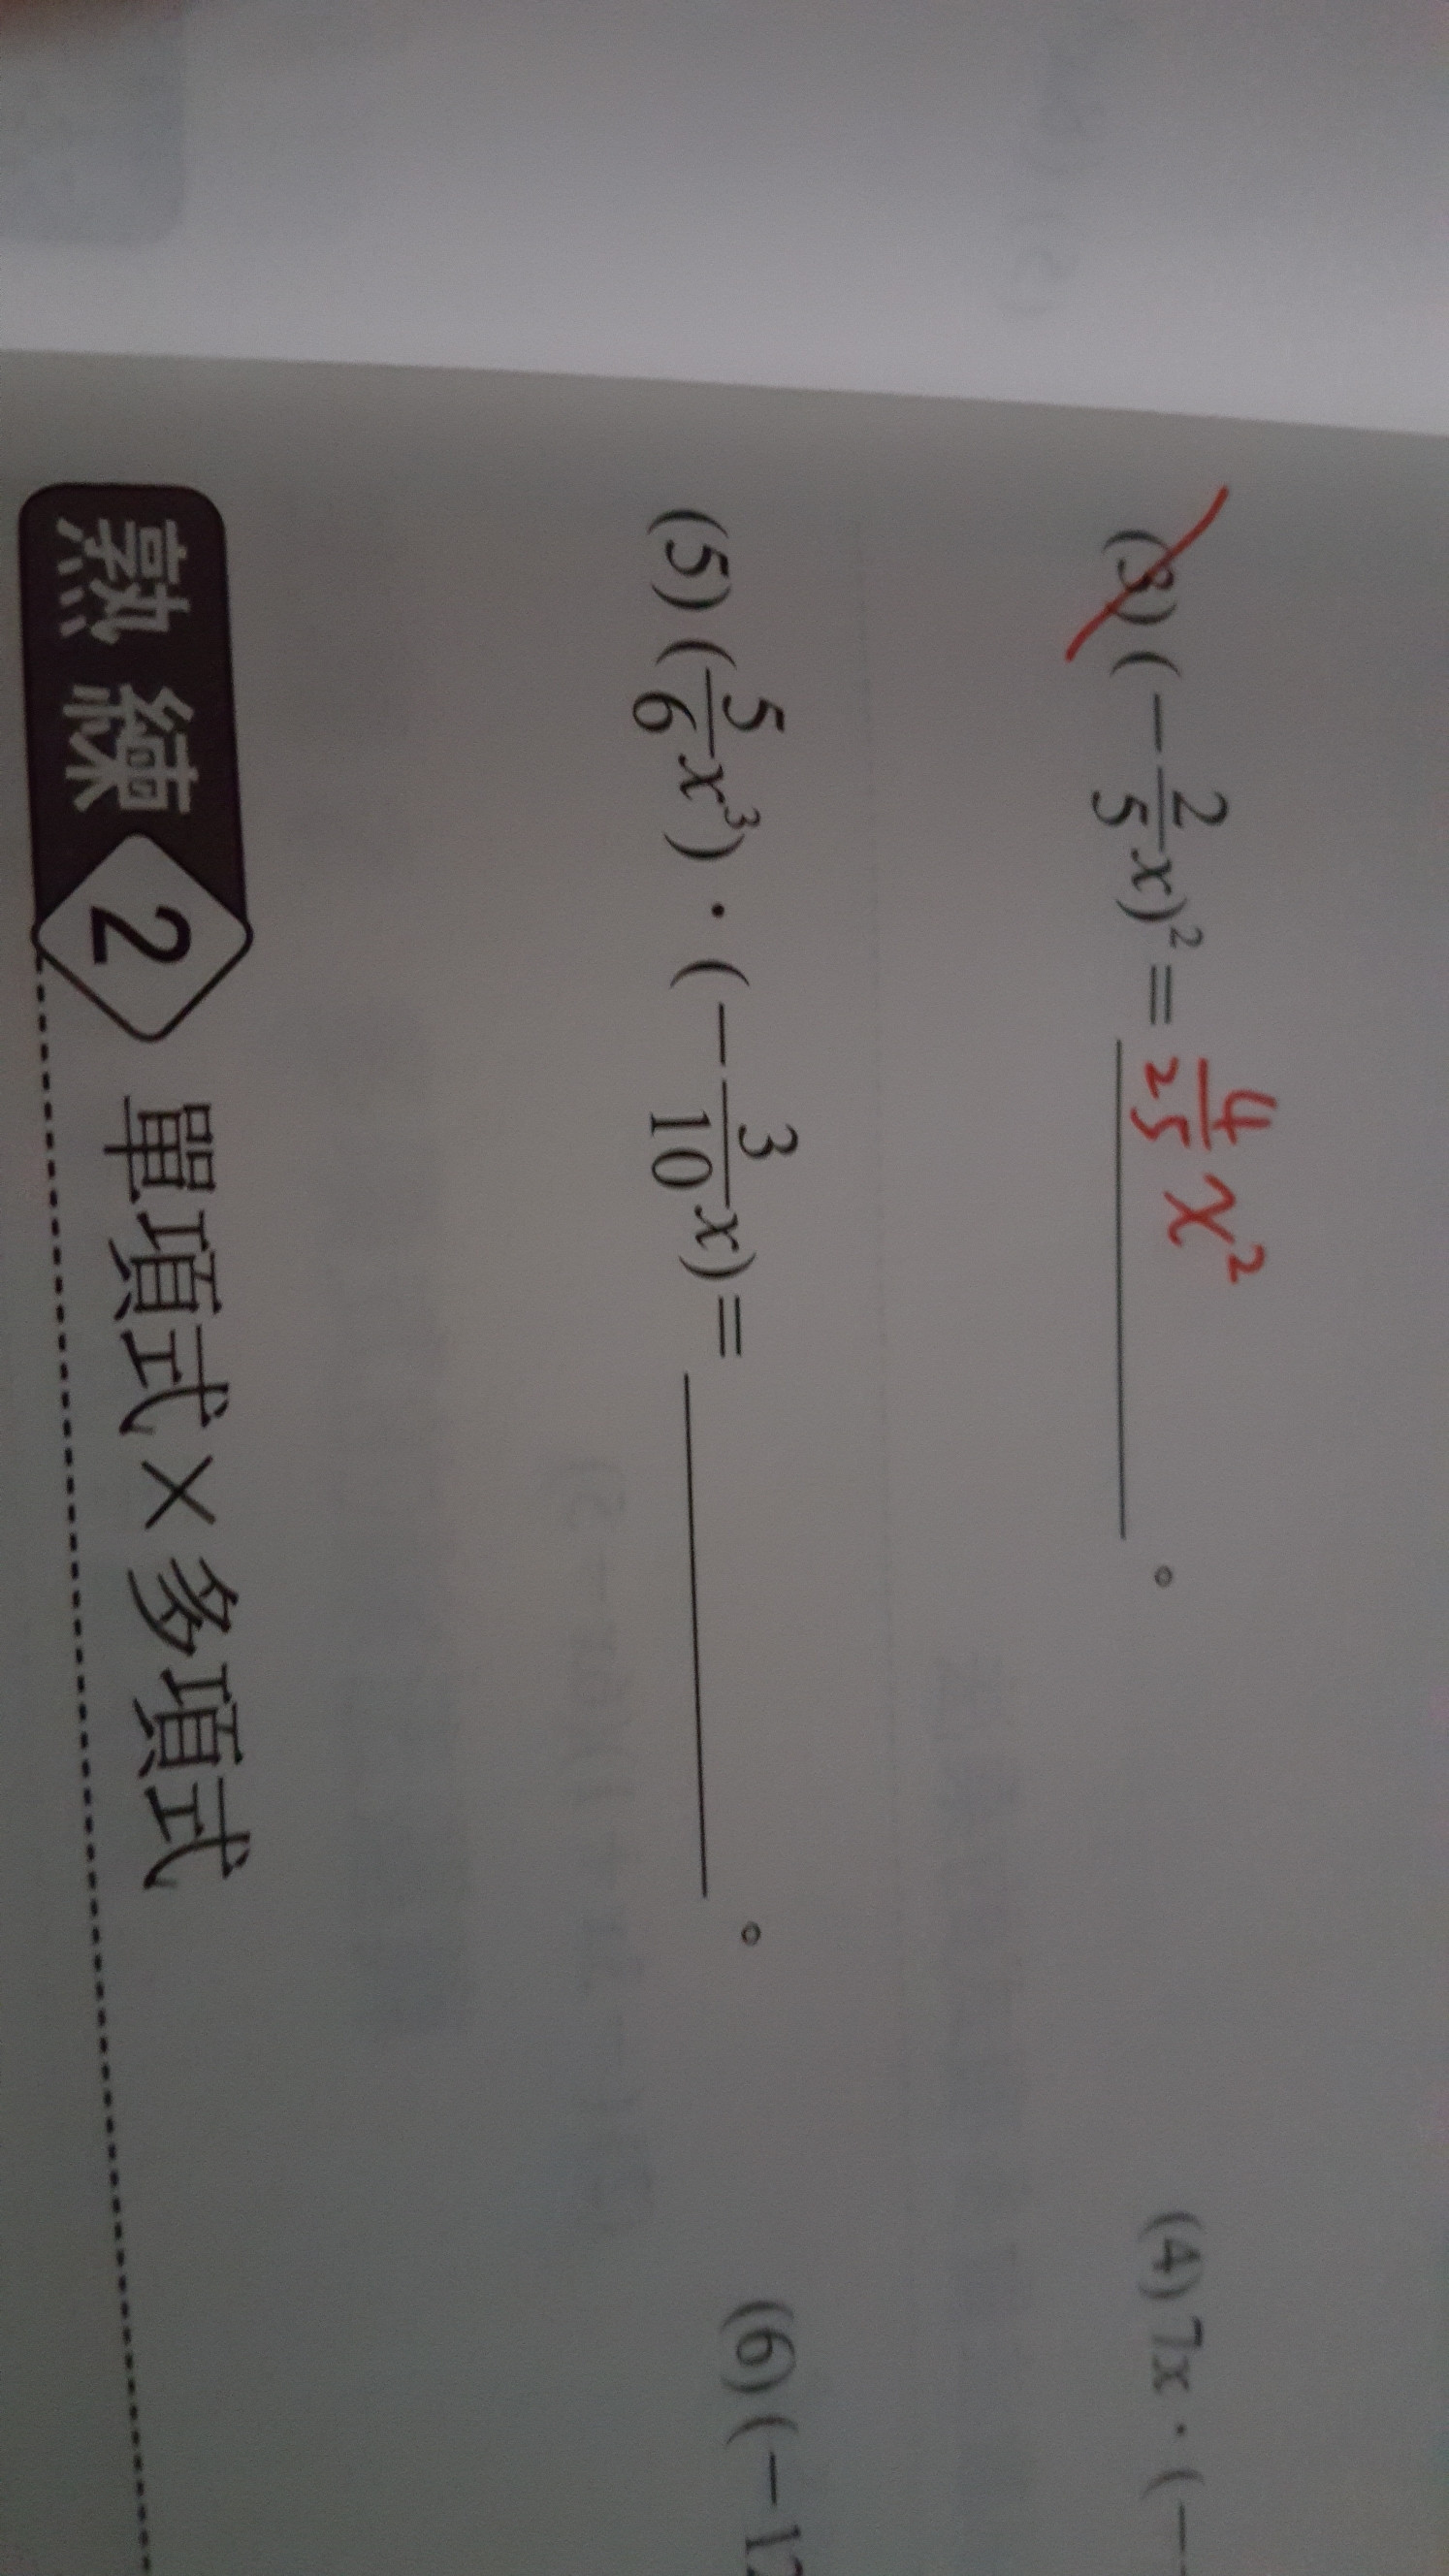 (3) (-\frac{2}{5}x)^2 = \frac{4}{25}x^2 。
(4) 7x · (-
(5) (\frac{5}{6}x^3) · (-\frac{3}{10}x) = ______ 。
(6) (-12
熟練 2 單項式×多項式